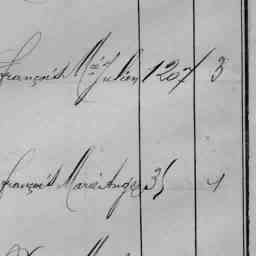 François Mie Julien 1207 3
François Marie Ange 35 4